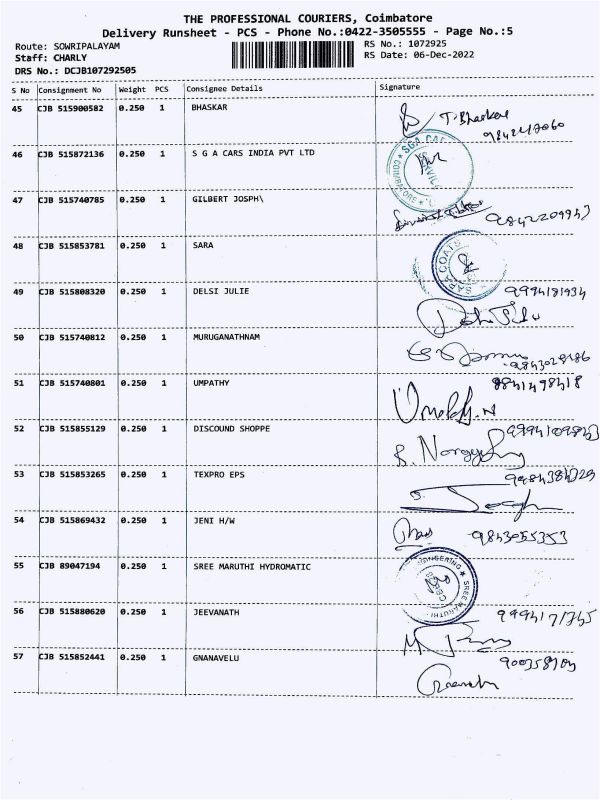 THE PROFESSIONAL COURIERS, Coimbatore
Delivery Runsheet - PCS - Phone No.:0422-3505555 - Page No.:5
Route: SOWRIPALAYAM RS No.: 1072925
Staff: CHARLY RS Date: 06-Dec-2022
DRS No.: DCJB107292505
S No Consignment No Weight PCS Consignee Details Signature
45 CJB 515900582 0.250 1 BHASKAR T. Bhaskar
46 CJB 515872136 0.250 1 S G A CARS INDIA PVT LTD
47 CJB 515740785 0.250 1 GILBERT JOSPH\
48 CJB 515853781 0.250 1 SARA
49 CJB 515808320 0.250 1 DELSI JULIE
50 CJB 515740812 0.250 1 MURUGANATHNAM
51 CJB 515740801 0.250 1 UMPATHY
52 CJB 515855129 0.250 1 DISCOUND SHOPPE
53 CJB 515853265 0.250 1 TEXPRO EPS
54 CJB 515869432 0.250 1 JENI H/W 9843055353
55 CJB 89047194 0.250 1 SREE MARUTHI HYDROMATIC SREE MARUTHI
56 CJB 515880620 0.250 1 JEEVANATH
57 CJB 515852441 0.250 1 GNANAVELU